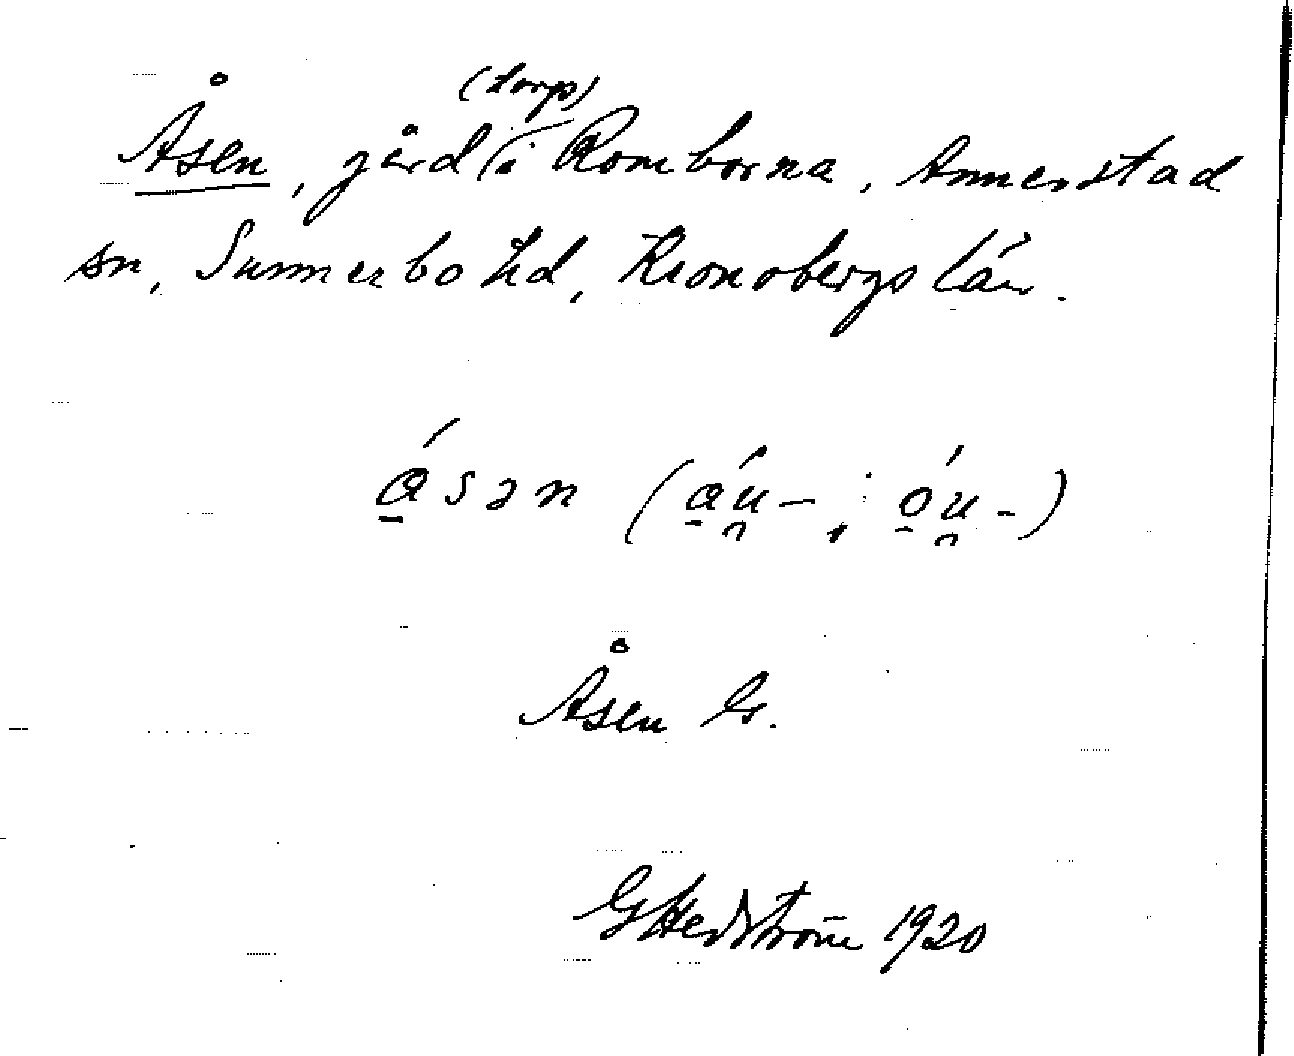 Åsen, gård (torp) i Romborna, Annerstad
sn, Sunnerbo hd, Kronobergs län.
á̱sən (á̱u̯- ; ó̱u̯-)
Åsen G.
G Hedström 1920